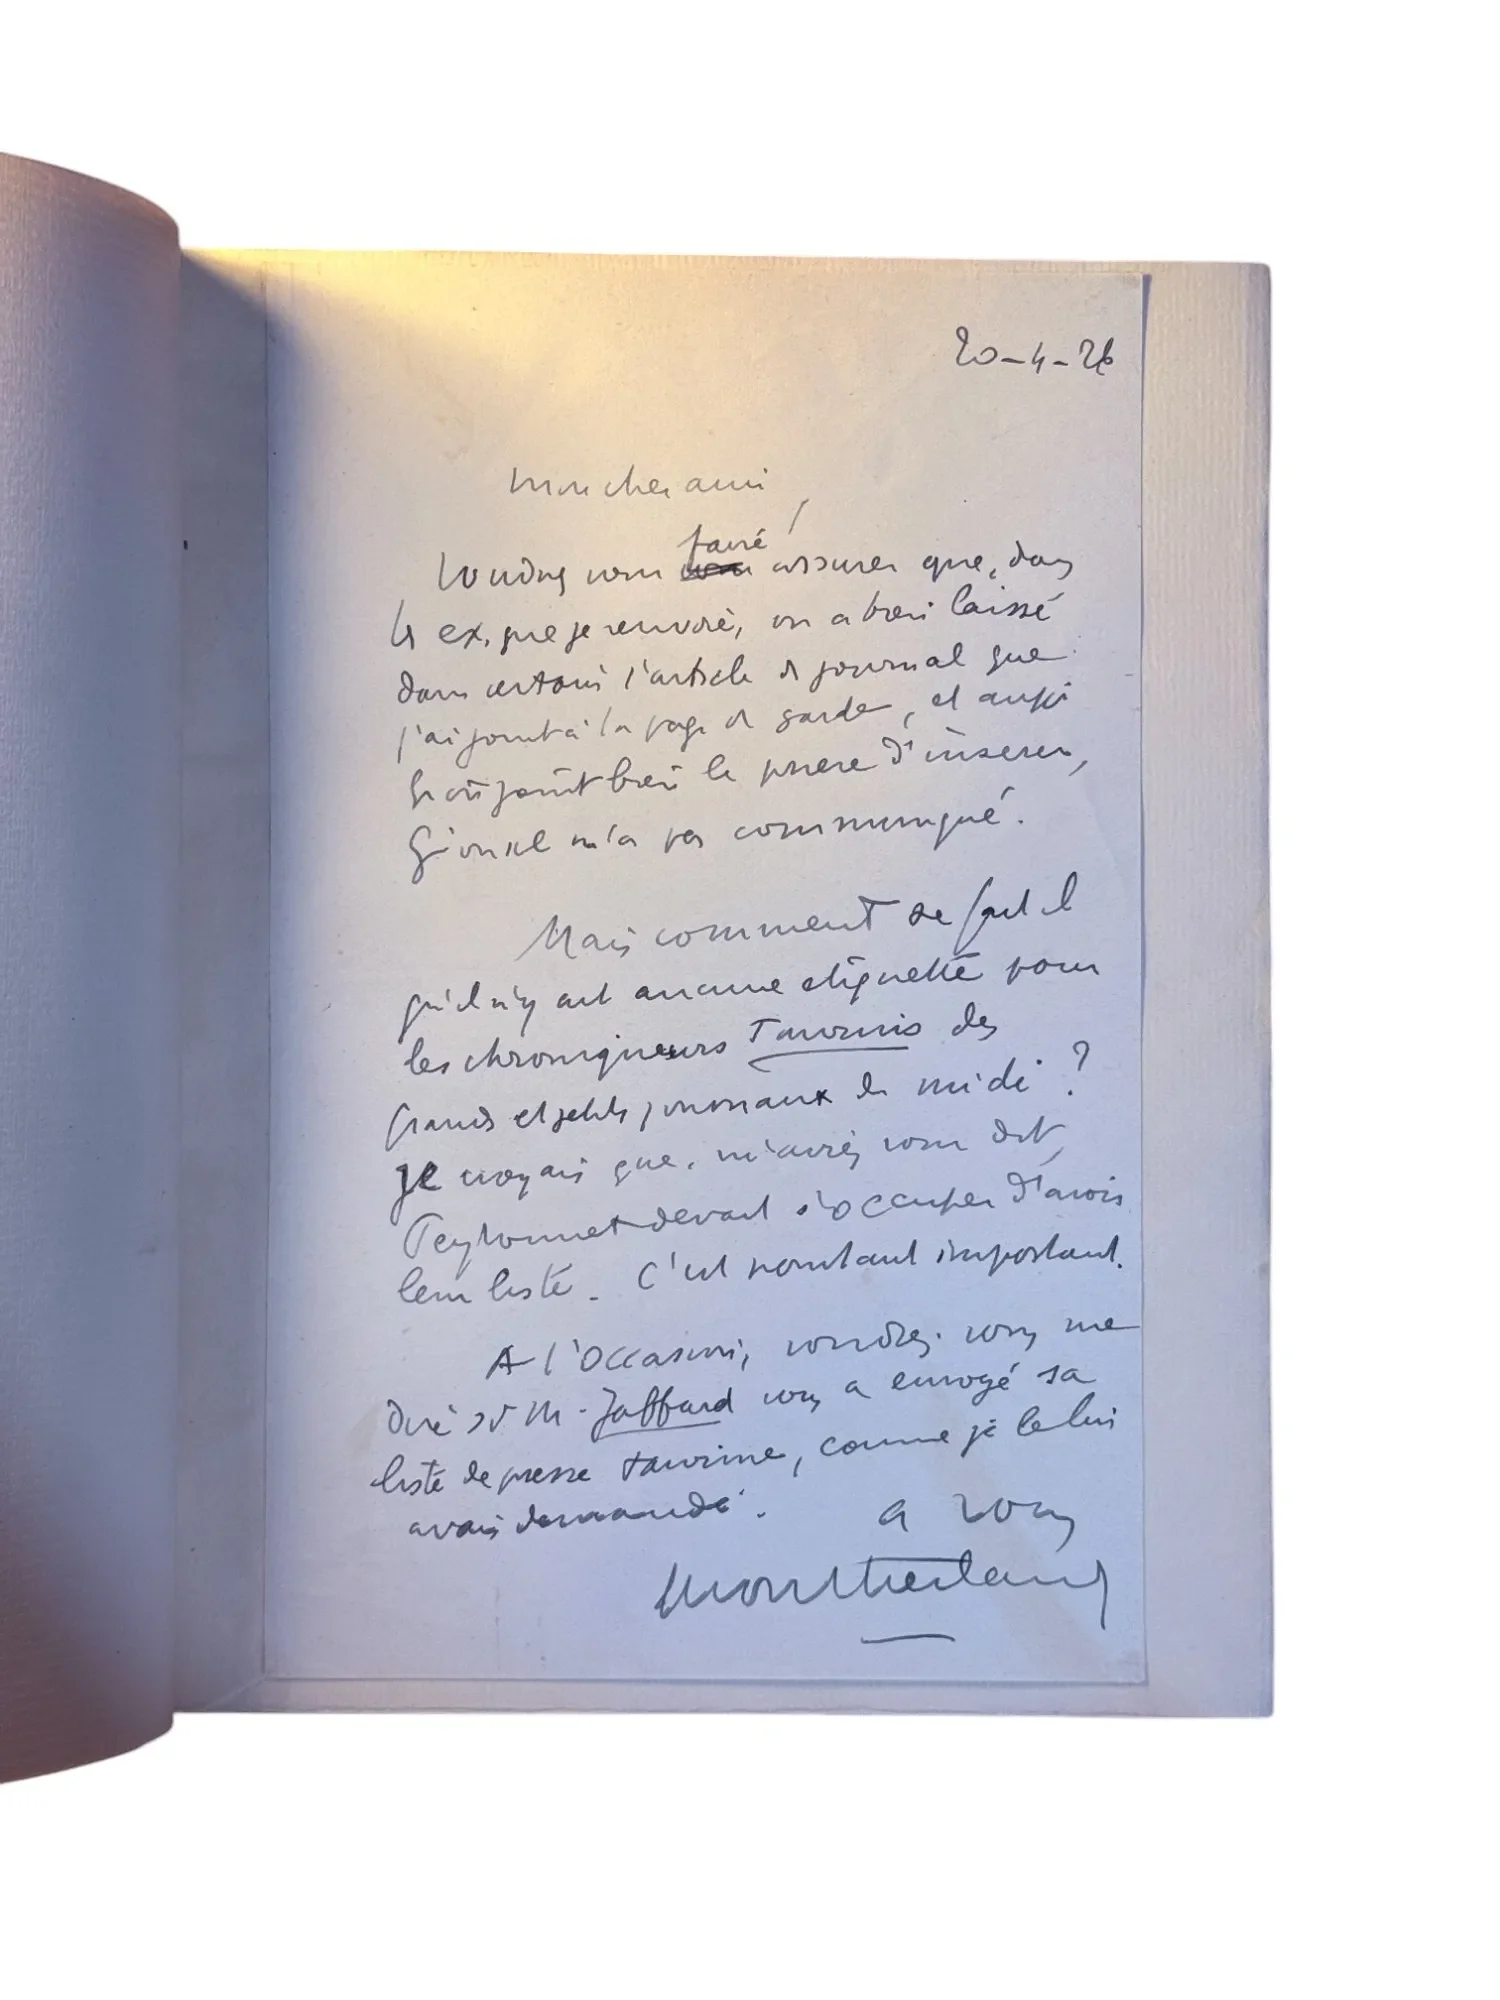 20-4-26
Mon cher ami
Voudriez vous faire assurer que, dans
les ex. que je renvoie, on a bien laissé
dans certains l'article de journal que
j'ai joint à la page de garde, et aussi
qu'on joint bien le prière d'insérer,
qu'on ne m'a pas communiqué.
Mais comment se fait il
qu'il n'y ait aucune étiquette pour
les chroniqueurs Taurins des
grands et petits journaux du midi ?
Je croyais que, m'aviez vous dit,
Peyronnet devait s'occuper d'avoir
leur liste. C'est pourtant important.
A l'occasion, voudrez-vous me
dire si M. Jaffard vous a envoyé sa
liste de presse taurine, comme je le lui
avais demandé.
A vous
Montherlant